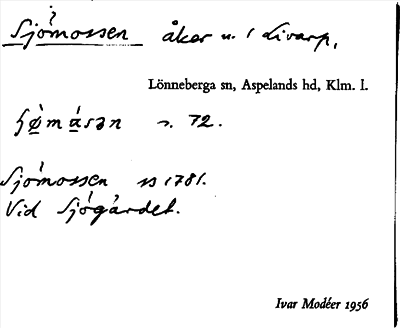 Sjömossen åker u. 1 Livarp,
Lönneberga sn, Aspelands hd, Klm. l.
s. 72.
Sjömossen 1781.
Vid Sjögärdet.
Ivar Modéer 1956